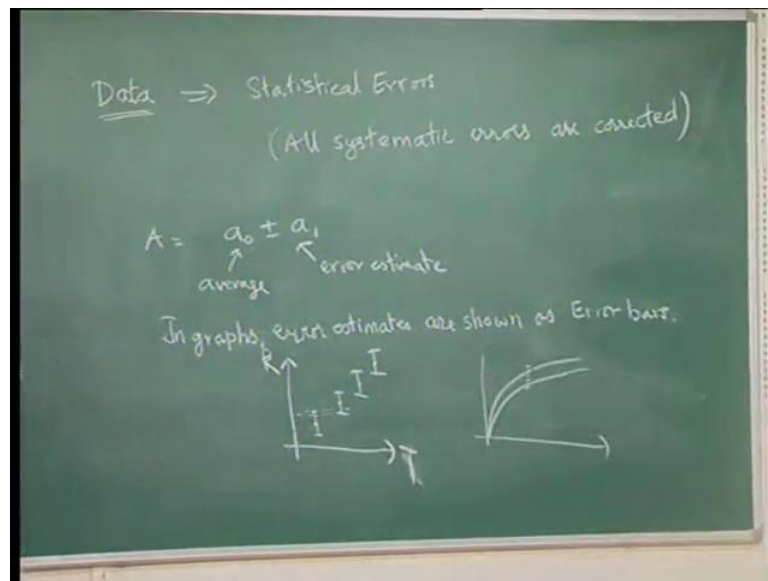 Data ⇒ Statistical Errors
(All systematic errors are corrected)
A = a₀ ± a₁
average
error estimate
In graphs, error estimates are shown as Error bars.
R
T